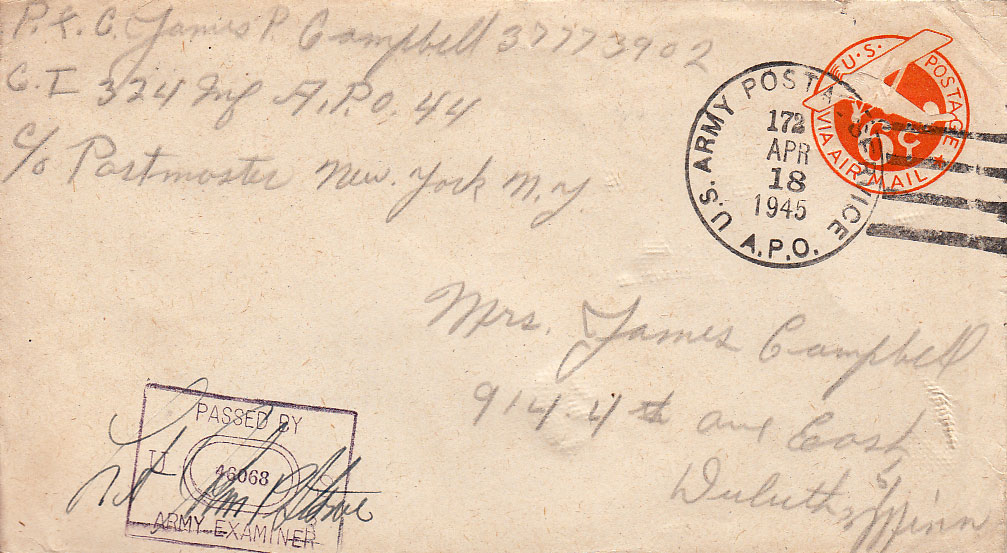 P.F.C. James P. Campbell 37773902
C. I 324 Inf A.P.O. 44
c/o Postmaster New. York N.Y
U.S. ARMY POSTAL SERVICE
172
APR
18
1945
A.P.O.
U.S. POSTAGE
6¢
VIA AIR MAIL
Mrs. James Campbell
914-4th ave East,
Duluth, Minn
PASSED BY
46068
ARMY EXAMINER
Lt Wm